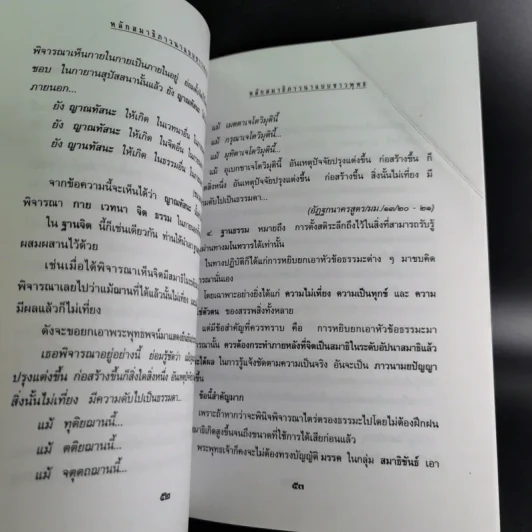 หลักสมาธิภาวนาแบบชาว
พิจารณาเห็นกายในกายเป็นภายในอยู่ ย่อมตั้ง
ชอบ ในกายานุปัสสนานั้นแล้ว ยัง ญาณทัสนะ
ภายนอก...
ยัง ญาณทัสนะ ให้เกิด ในเวทนาอื่น
ยัง ญาณทัสนะ ให้เกิด ในจิตอื่น
ยัง ญานทัสนะ ให้เกิด ในธรรมอื่น
จากข้อความนี้จะเห็นได้ว่า ญาณทัสนะ
พิจารณา กาย เวทนา จิต ธรรม
ใน ฐานจิต นี้ก็เช่นเดียวกัน ท่านให้นำ
ผสมผสานไว้ด้วย
เช่นเมื่อได้พิจารณาเห็นจิตมีสมาธิ
พิจารณาเลยไปว่าแม้ฌานที่ได้แล้วนั้นไม่เที่ยง
มีผลแล้วก็ไม่เที่ยง
ดังจะขอยกเอาพระพุทธพจน์มาแสดง
เธอพิจารณาอยู่อย่างนี้ ย่อมรู้ชัดว่า
ปรุงแต่งขึ้น ก่อสร้างขึ้นก็สิ่งใดสิ่งหนึ่ง อันเหตุปัจจัย
สิ่งนั้นไม่เที่ยง มีความดับไปเป็นธรรมดา...
แม้ ทุติยฌานนี้...
แม้ ตติยฌานนี้...
แม้ จตุตถฌานนี้...
๕๒
หลักสมาธิภาวนาแบบชาวพุทธ
แม้ เมตตาเจโตวิมุตินี้
แม้ กรุณาเจโตวิมุตินี้...
แม้ มุทิตาเจโตวิมุตินี้...
แม้ อุเบกขาเจโตวิมุตินี้ อันเหตุปัจจัยปรุงแต่งขึ้น ก่อสร้างขึ้น ก็
สิ่งหนึ่ง อันเหตุปัจจัยปรุงแต่งขึ้น ก่อสร้างขึ้น สิ่งนั้นไม่เที่ยง มี
ความดับไปเป็นธรรมดา...
(อัฏฐกนาครสูตร/มม./๑๓/๒๐ - ๒๑)
๔ ฐานธรรม หมายถึง การตั้งสติระลึกถึงไว้ในสิ่งที่สามารถรับรู้
ผ่านทางมโนทวารได้เท่านั้น
ในทางปฏิบัติก็ได้แก่การหยิบยกเอาหัวข้อธรรมะต่าง ๆ มาขบคิด
นั่นเอง
โดยเฉพาะอย่างยิ่งได้แก่ ความไม่เที่ยง ความเป็นทุกข์ และ ความ
ของสรรพสิ่งทั้งหลาย
แต่มีข้อสำคัญที่ควรทราบ คือ การหยิบยกเอาหัวข้อธรรมะมา
นั้น ควรต้องกระทำภายหลังที่จิตเป็นสมาธิในระดับอัปนาสมาธิแล้ว
ได้ผล ในการรู้แจ้งชัดตามความเป็นจริง อันจะเป็น ภาวนามยปัญญา
ขึ้น
ข้อนี้สำคัญมาก
เพราะถ้าหากว่าจะพินิจพิจารณาไตร่ตรองธรรมะไปโดยไม่ต้องฝึกฝน
สมาธิเกิดสูงขึ้นจนถึงขนาดที่ใช้การได้เสียก่อนแล้ว
พระพุทธเจ้าก็คงจะไม่ต้องทรงบัญญัติ มรรค ในกลุ่ม สมาธิขันธ์ เอา
๕๓